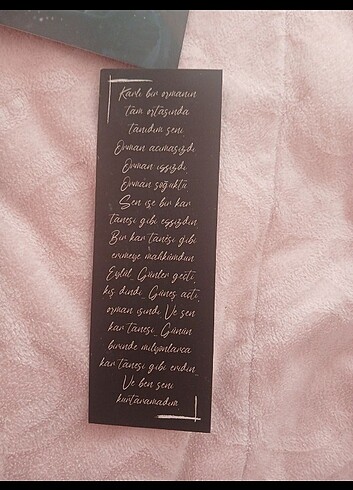 Karlı bir ormanın
tam ortasında
tanıdım seni.
Orman acımasızdı.
Orman ıssızdı.
Orman soğuktu.
Sen ise bir kar
tanesi gibi eşsizdin.
Bir kar tanesi gibi
erimeye mahkûmdun
Eylül. Günler geçti,
kış dindi. Güneş açtı,
orman ısındı. Ve sen
kar tanesi... Günün
birinde milyonlarca
kar tanesi gibi eridin...
Ve ben seni
kurtaramadım.